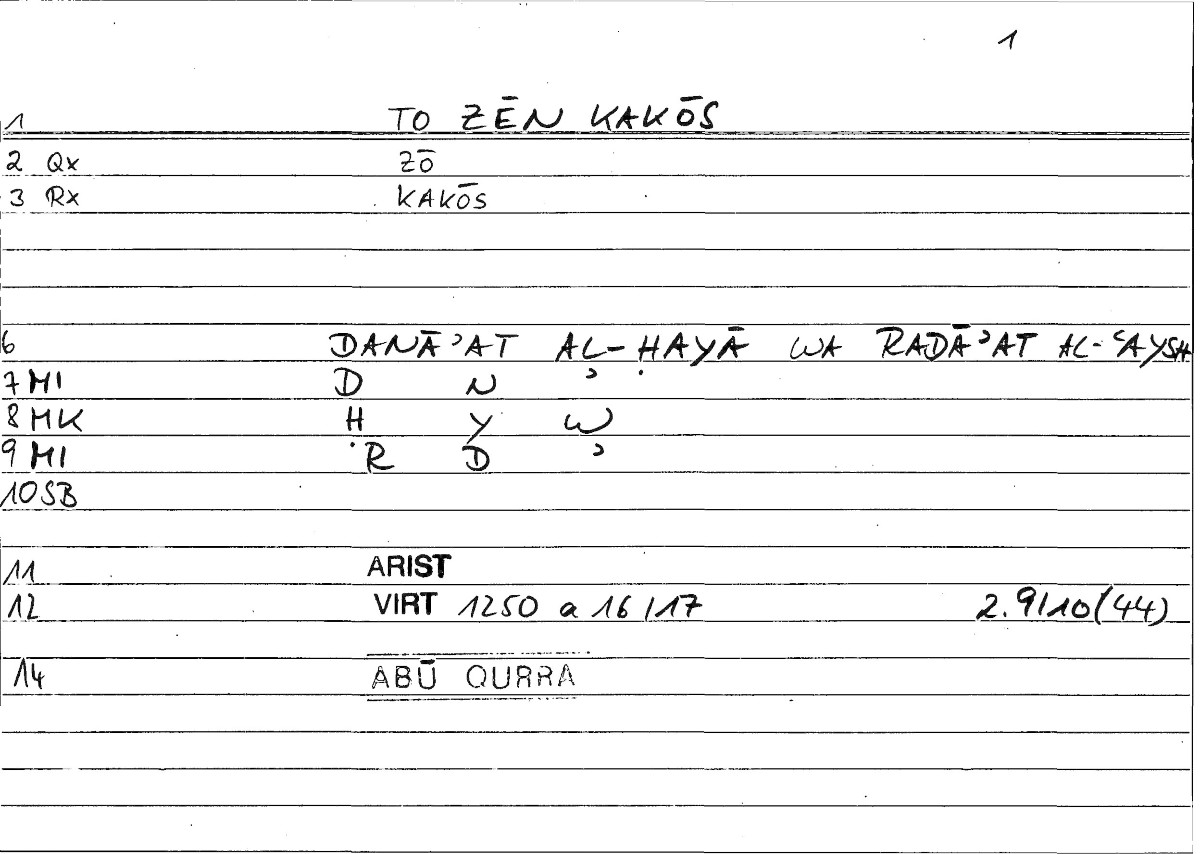 1
1 TO ZĒN KAKŌS
2 Qx ZŌ
3 Rx KAKŌS
6 DANĀʾAT AL-ḤAYĀ WA RADĀʾAT AL-ʿAYSH
7 MI D N ʾ
8 MK Ḥ Y W
9 MI R D ʾ
10 SB
11 ARIST
12 VIRT 1250 a 16/17 2.9/10(44)
14 ABŪ QURRA